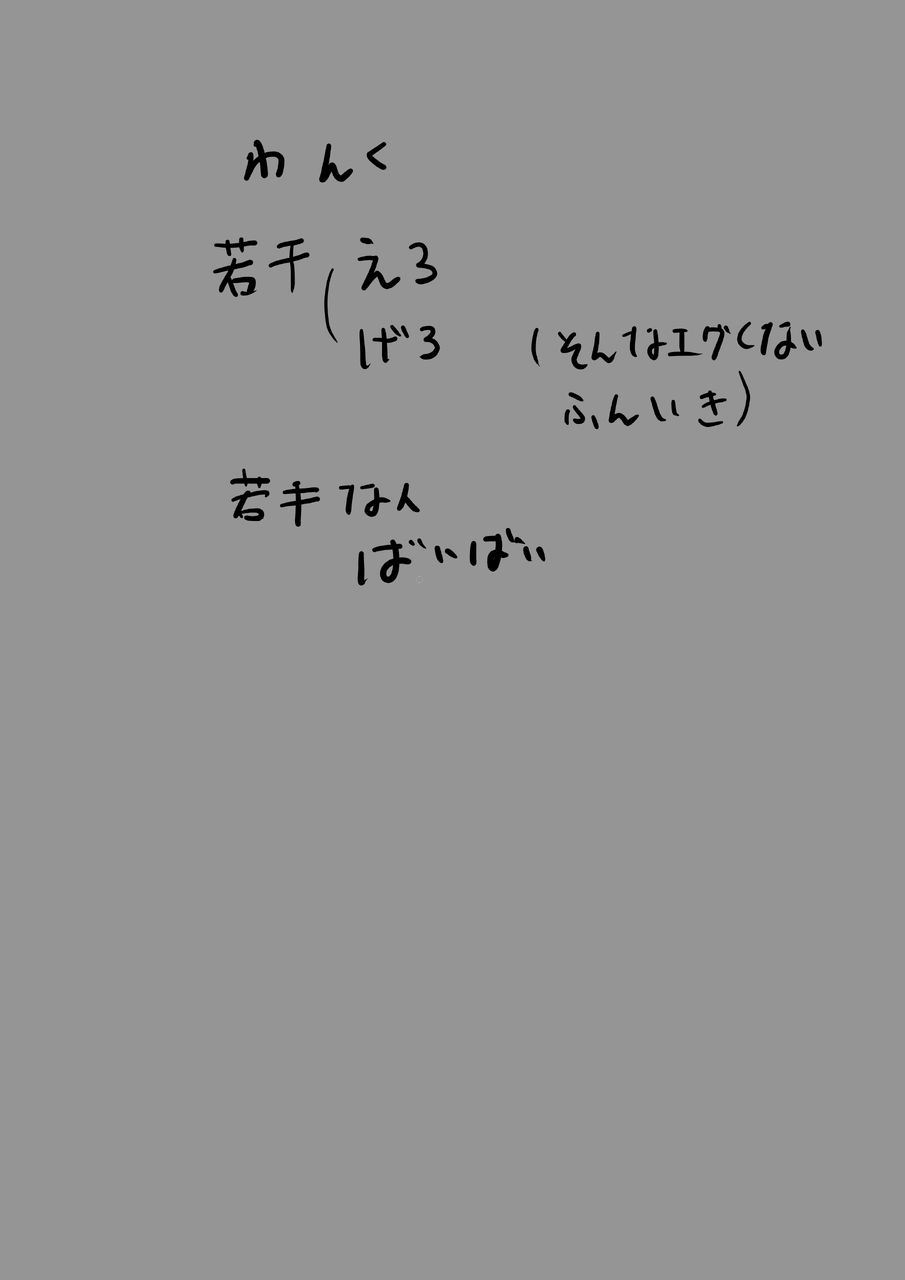 わんく
若干 えろ
げろ (そんなエグくない
ふんいき)
若干なん
ばいばい